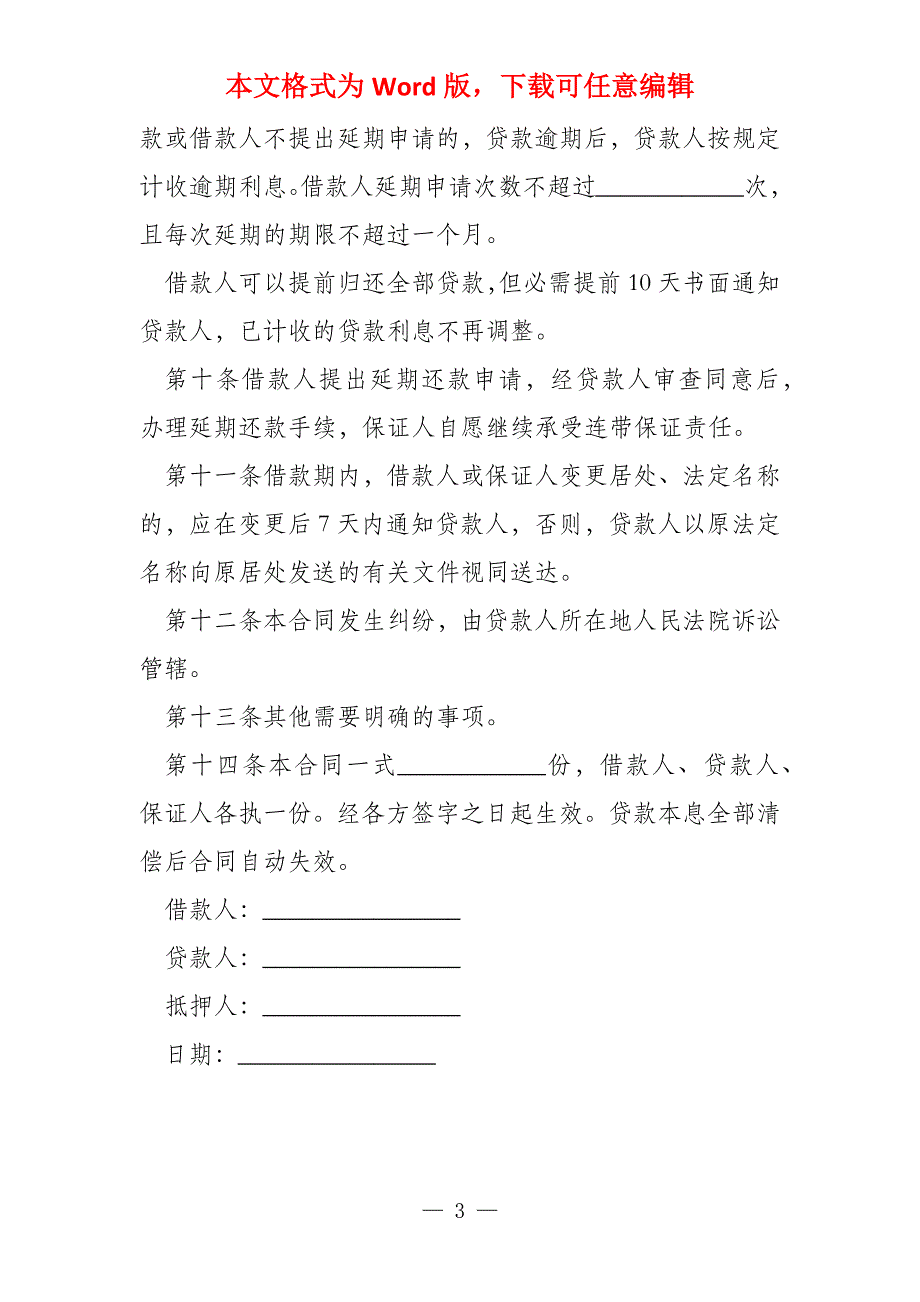 本文格式为 Word 版，下载可任意编辑
款或借款人不提出延期申请的，贷款逾期后，贷款人按规定
计收逾期利息。借款人延期申请次数不超过____________次，
且每次延期的期限不超过一个月。
借款人可以提前归还全部贷款，但必需提前 10 天书面通知
贷款人，已计收的贷款利息不再调整。
第十条借款人提出延期还款申请，经贷款人审查同意后，
办理延期还款手续，保证人自愿继续承受连带保证责任。
第十一条借款期内，借款人或保证人变更居处、法定名称
的，应在变更后 7 天内通知贷款人，否则，贷款人以原法定
名称向原居处发送的有关文件视同送达。
第十二条本合同发生纠纷，由贷款人所在地人民法院诉讼
管辖。
第十三条其他需要明确的事项。
第十四条本合同一式____________份，借款人、贷款人、
保证人各执一份。经各方签字之日起生效。贷款本息全部清
偿后合同自动失效。
借款人：________________
贷款人：________________
抵押人：________________
日期：________________
— 3 —